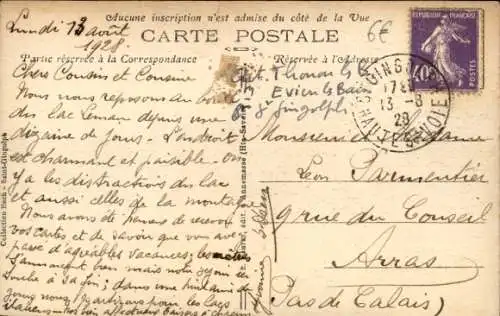 Aucune inscription n'est admise du côté de la Vue
CARTE POSTALE
Partie réservée à la Correspondance
Réservée à l'Adresse
6€
RÉPUBLIQUE FRANÇAISE
40c
POSTES
13 -8
28
HTE SAVOIE
Lundi 13 août
1928
Chers Cousins et Cousine
Nous nous reposons au bord
du lac Leman depuis une
dizaine de jours. L'endroit
est charmant et paisible. On
y a les distractions du lac
et aussi celles de la montagne
Nous avons été heureux de recevoir
vos cartes et de savoir que vous avez
passé d'agréables vacances; les nôtres
s'annoncent bien mais
touche à sa fin; dans une huitaine de
jours nous partirons pour les
affectueux baisers à chacun
Thonon les B
Evian les Bains
St Gingolph
Monsieur et Madame
Léon Parmentier
9 rue du Conseil
Arras
(Pas de Calais)
Collection Bech - Saint-Gingolph
édit. Annemasse (Hte-Savoie)